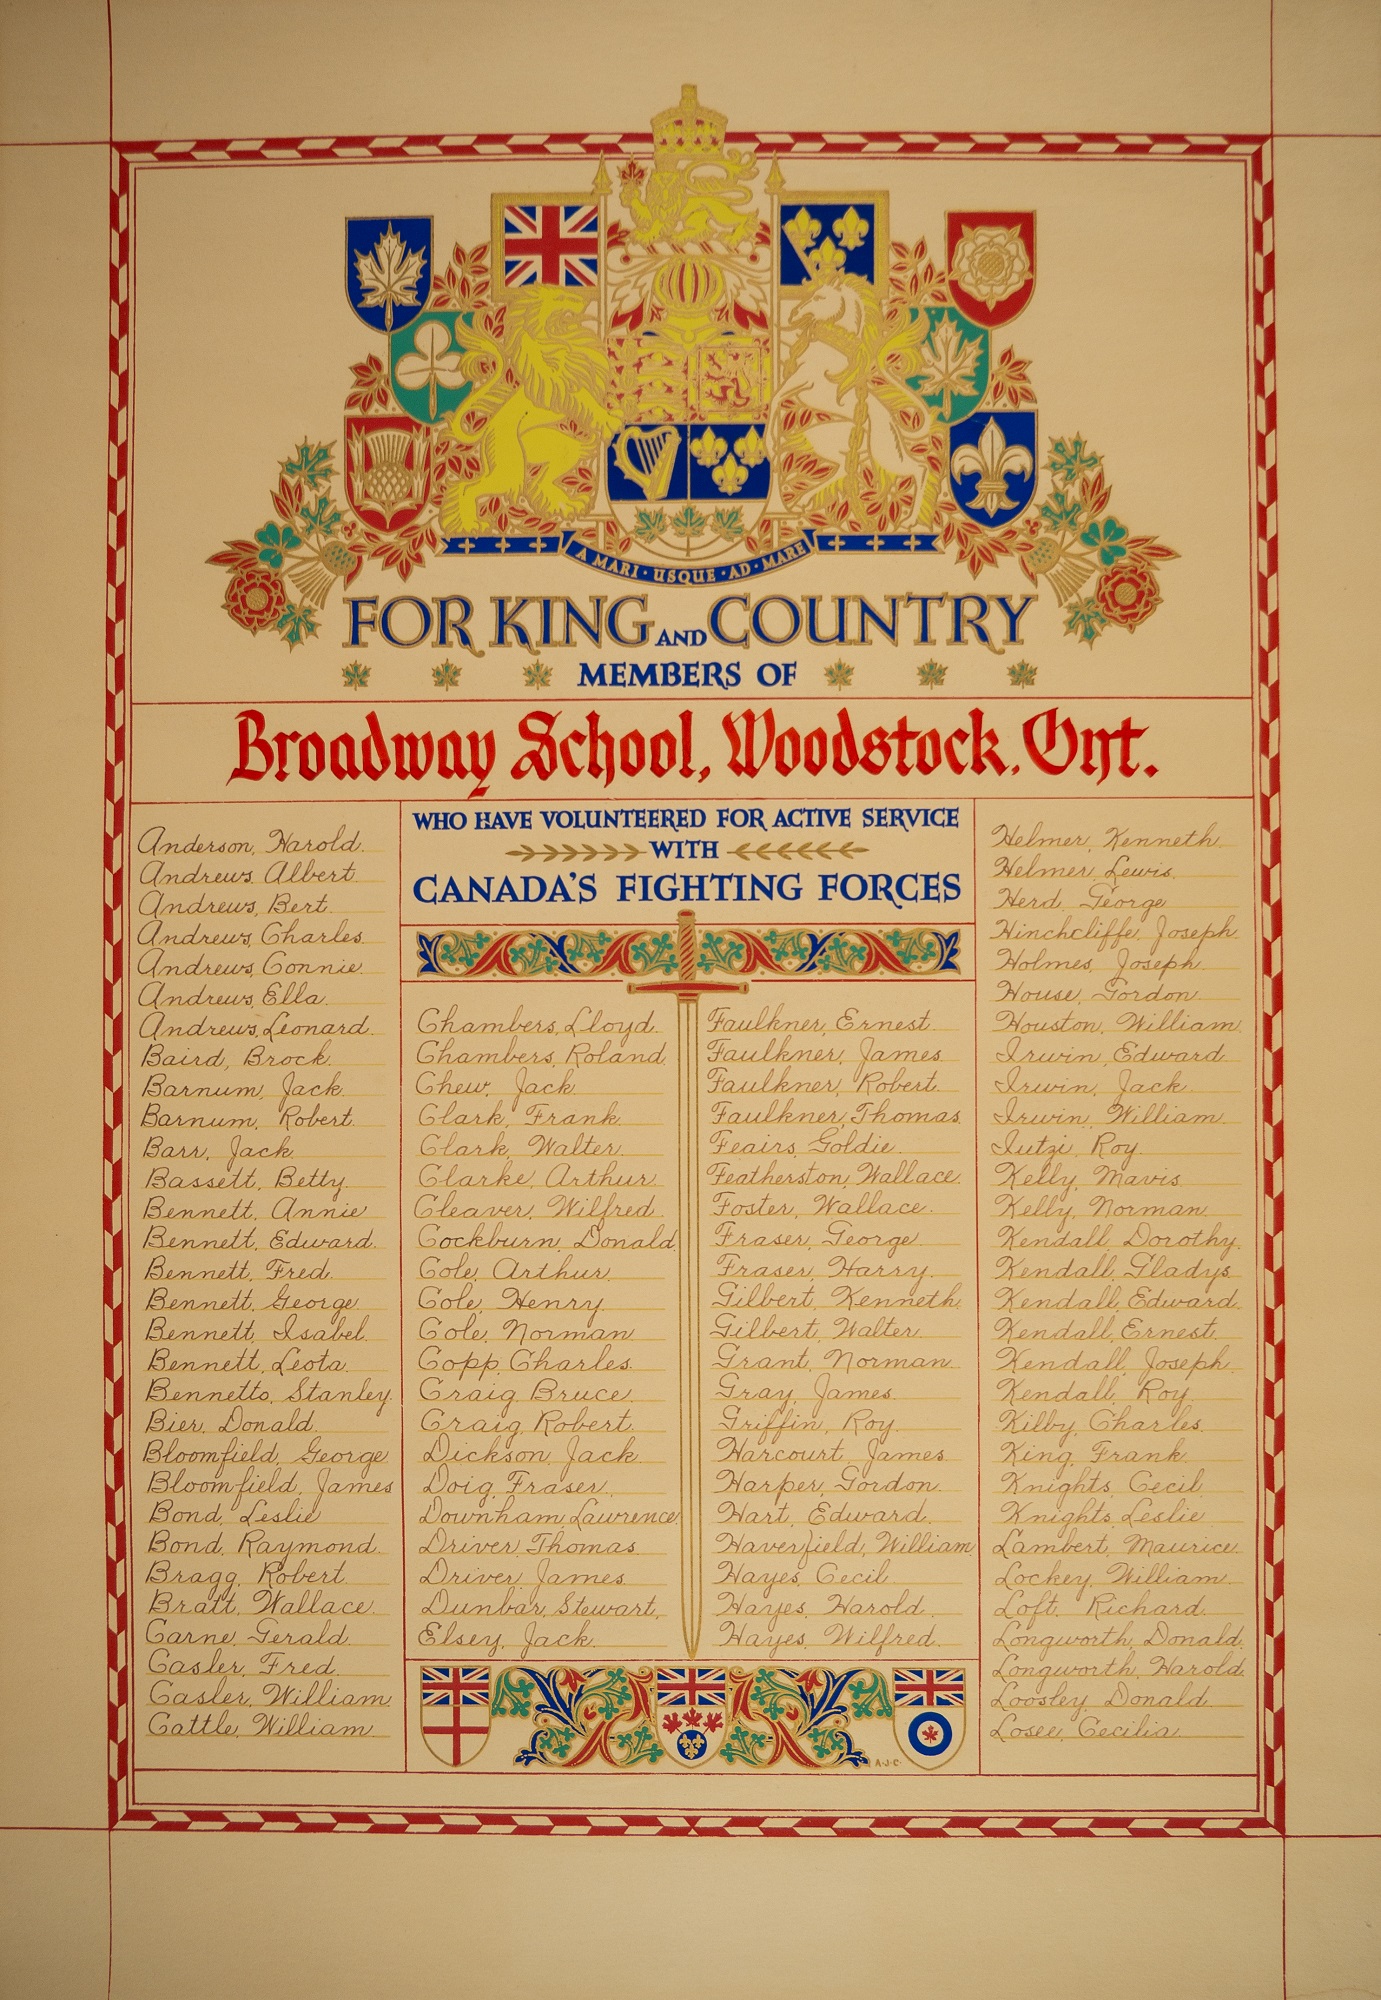 A MARI · USQUE · AD · MARE
FOR KING AND COUNTRY
MEMBERS OF
Broadway School, Woodstock, Ont.
WHO HAVE VOLUNTEERED FOR ACTIVE SERVICE
WITH
CANADA'S FIGHTING FORCES
Anderson, Harold.
Andrews, Albert.
Andrews, Bert.
Andrews, Charles.
Andrews, Connie.
Andrews, Ella.
Andrews, Leonard.
Baird, Brock.
Barnum, Jack.
Barnum, Robert.
Barr, Jack.
Bassett, Betty.
Bennett, Annie
Bennett, Edward.
Bennett, Fred.
Bennett, George.
Bennett, Isabel.
Bennett, Leota.
Bennetto, Stanley.
Bier, Donald.
Bloomfield, George
Bloomfield, James
Bond, Leslie
Bond, Raymond.
Bragg, Robert.
Bratt, Wallace.
Carne, Gerald.
Casler, Fred.
Casler, William.
Cattle, William.
Chambers, Lloyd.
Chambers, Roland.
Chew, Jack.
Clark, Frank.
Clark, Walter.
Clarke, Arthur.
Cleaver, Wilfred.
Cockburn, Donald.
Cole, Arthur.
Cole, Henry.
Cole, Norman
Copp, Charles.
Craig, Bruce.
Craig, Robert.
Dickson, Jack
Doig, Fraser.
Downham, Lawrence.
Driver, Thomas.
Driver, James.
Dunbar, Stewart.
Elsey, Jack.
Faulkner, Ernest
Faulkner, James.
Faulkner, Robert.
Faulkner, Thomas.
Feairs, Goldie.
Featherston, Wallace.
Foster, Wallace.
Fraser, George
Fraser, Harry.
Gilbert, Kenneth.
Gilbert, Walter.
Grant, Norman.
Gray, James.
Griffin, Roy.
Harcourt, James.
Harper, Gordon.
Hart, Edward.
Haverfield, William.
Hayes, Cecil
Hayes, Harold.
Hayes, Wilfred.
Helmer, Kenneth.
Helmer, Lewis.
Herd, George
Hinchcliffe, Joseph.
Holmes, Joseph.
House, Gordon.
Houston, William.
Irwin, Edward.
Irwin, Jack.
Irwin, William.
Iutzi, Roy.
Kelly, Mavis
Kelly, Norman.
Kendall, Dorothy.
Kendall, Gladys.
Kendall, Edward.
Kendall, Ernest.
Kendall, Joseph.
Kendall, Roy.
Kilby, Charles.
King, Frank.
Knights, Cecil
Knights, Leslie
Lambert, Maurice.
Lockey, William.
Loft, Richard.
Longworth, Donald.
Longworth, Harold.
Loosley, Donald.
Losee, Cecilia.
A.J.C.